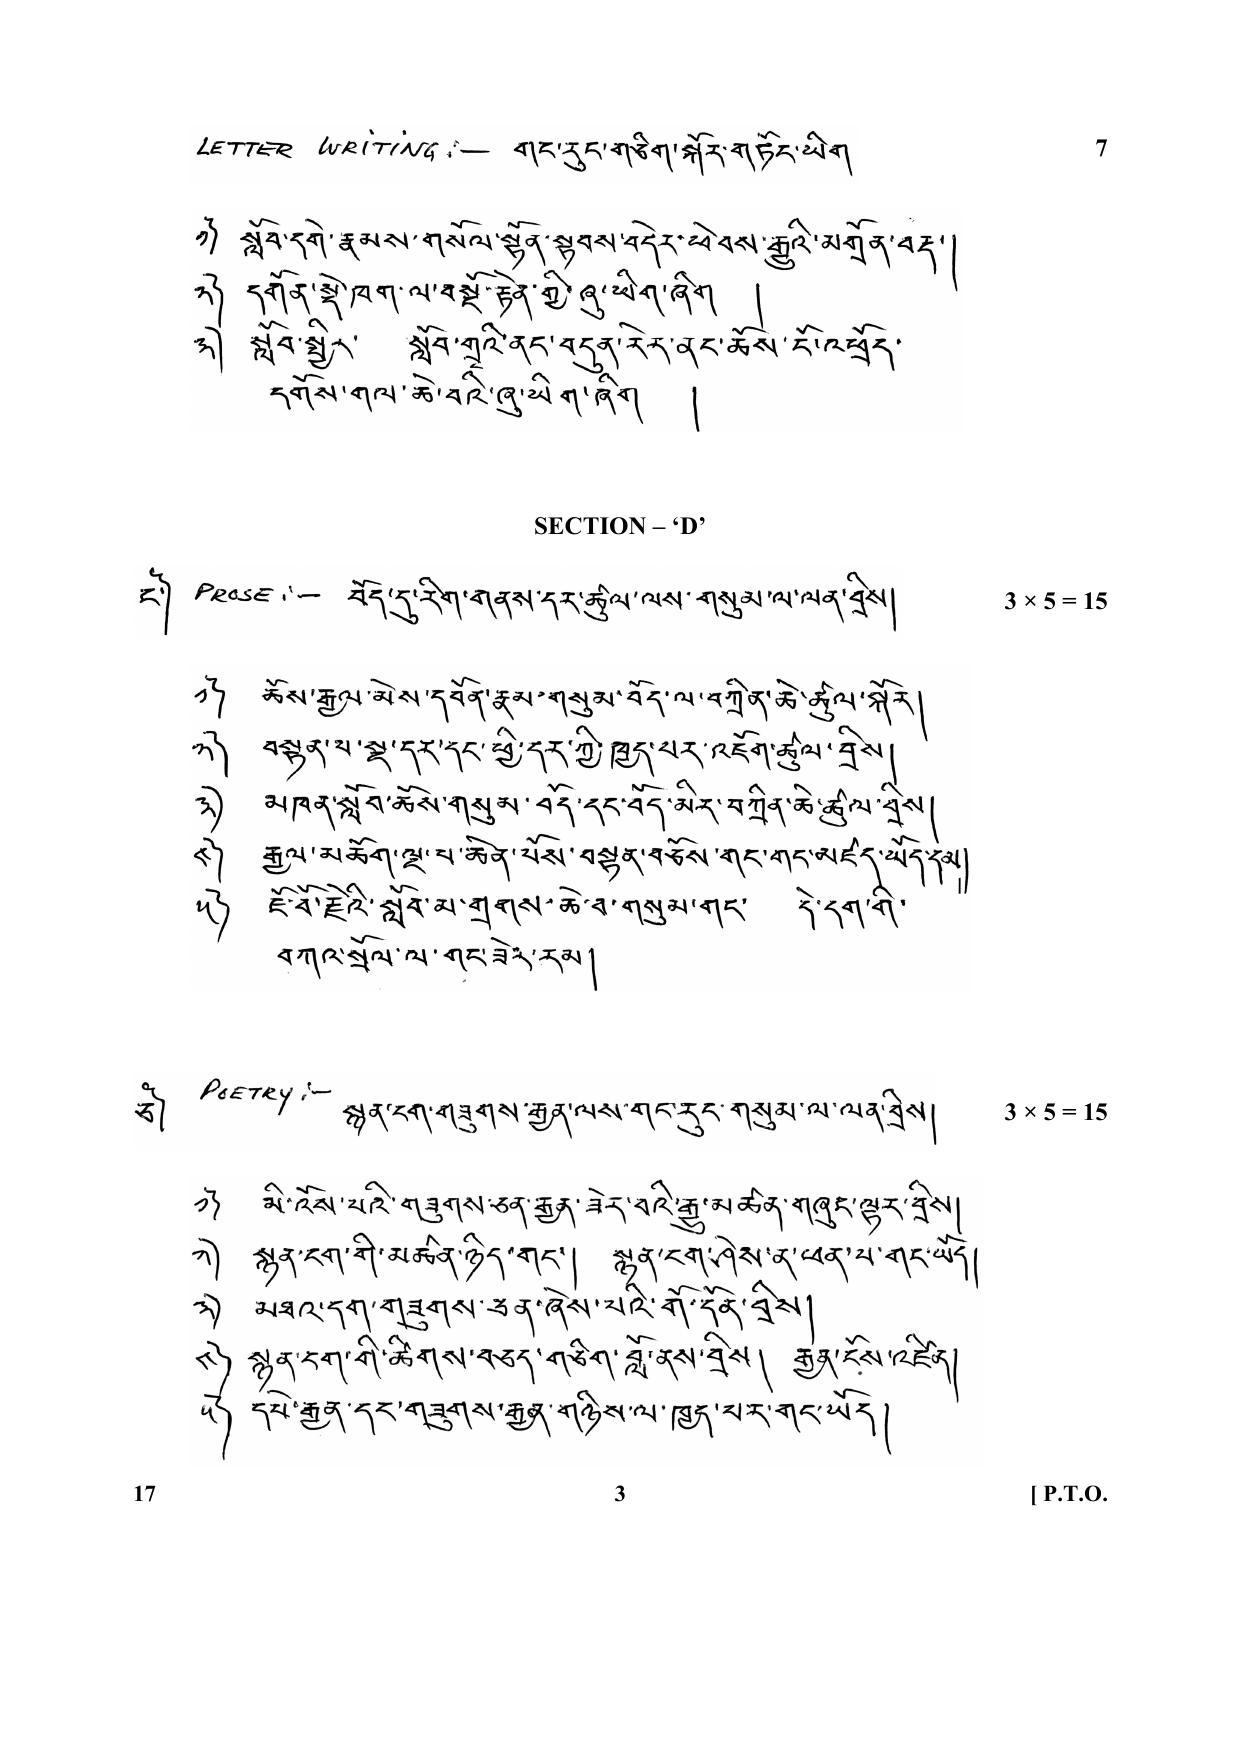 LETTER WRITING :— གང་རུང་གཅིག་སྐོར་གཏོང་ཡིག 7
༡) སློབ་དགེ་རྣམས་གསོལ་སྟོན་སྟབས་བདེར་ཕེབས་རྒྱུའི་མགྲོན་བརྡ།
༢) དགོན་སྡེ་ཁག་ལ་བསྔོ་རྟེན་གྱི་ཞུ་ཡིག་ཞིག །
༣) སློབ་སྤྱིར་ སློབ་གྲྭའི་ནང་བདུན་རེར་ནང་ཆོས་ངོ་འཕྲོད་
དགོས་གལ་ཆེ་བའི་ཞུ་ཡིག་ཞིག །
SECTION – ‘D’
ང༽ PROSE :— བོད་དུ་རིག་གནས་དར་ཚུལ་ལས་གསུམ་ལ་ལན་བྲིས། 3 × 5 = 15
༡) ཆོས་རྒྱལ་མེས་དབོན་རྣམ་གསུམ་བོད་ལ་བཀྲིན་ཆེ་ཚུལ་སྐོར།
༢) བསྟན་པ་སྔ་དར་དང་ཕྱི་དར་ཀྱི་ཁྱད་པར་འཇོག་ཚུལ་བྲིས།
༣) མཁན་སློབ་ཆོས་གསུམ་བོད་དང་བོད་མིར་བཀྲིན་ཆེ་ཚུལ་བྲིས།
༤) རྒྱལ་མཆོག་ལྔ་པ་ཆེན་པོས་བསྟན་བཅོས་གང་གང་མཛད་ཡོད་དམ༎
༥) ཇོ་བོ་རྗེའི་སློབ་མ་གྲགས་ཆེ་བ་གསུམ་གང་ དེ་དག་གི་
བཀའ་སྲོལ་ལ་གང་ཟེར་རམ།
ཅ༽ POETRY :— སྙན་ངག་གཟུགས་རྒྱན་ལས་གང་རུང་གསུམ་ལ་ལན་བྲིས། 3 × 5 = 15
༡) མི་འོས་པའི་གཟུགས་ཅན་རྒྱན་ཟེར་བའི་རྒྱུ་མཚན་གཞུང་ལྟར་བྲིས།
༢) སྙན་ངག་གི་མཚན་ཉིད་གང་། སྙན་ངག་ཤེས་ན་ཕན་པ་གང་ཡོད།
༣) མཐའ་དག་གཟུགས་ཅན་ཞེས་པའི་གོ་དོན་བྲིས།
༤) སྙན་ངག་གི་ཚིགས་བཅད་གཅིག་བློ་ནས་བྲིས། རྒྱན་ངོས་འཛིན།
༥) དཔེ་རྒྱན་དང་གཟུགས་རྒྱན་གཉིས་ལ་ཁྱད་པར་གང་ཡོད།
17 3 [ P.T.O.